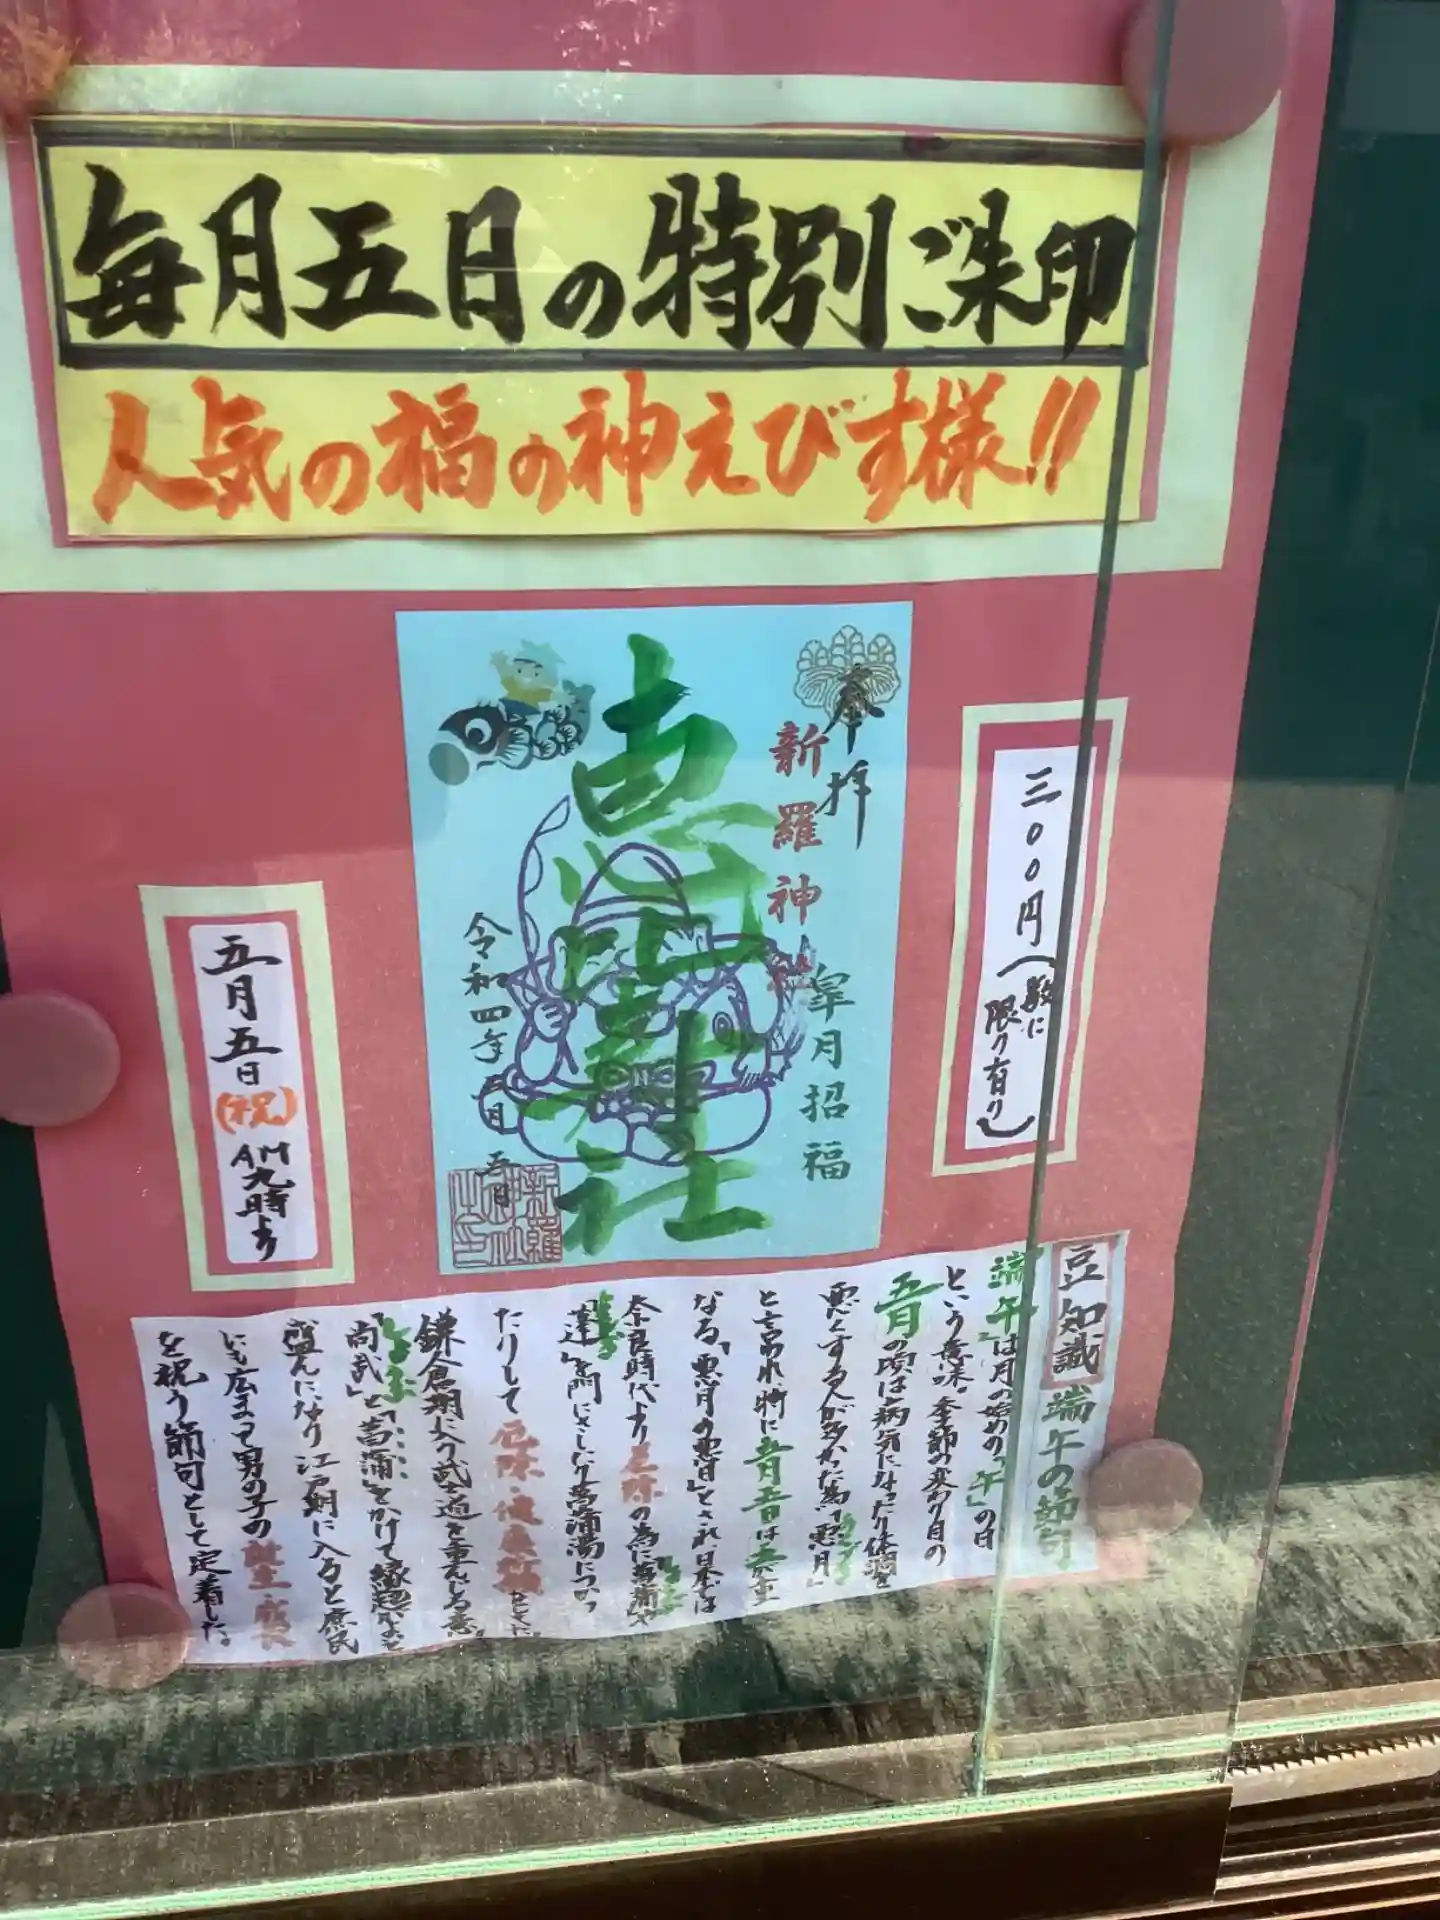 毎月五日の特別ご朱印
人気の福の神えびす様!!
奉拝
新羅神社
皐月招福
恵比寿社
令和四年五月五日
新羅神社之印
三〇〇円(数に
限り有り)
五月五日(祝)AM九時より
豆知識 端午の節句
「端午」は月の始めの「午」の日
という意味。季節の変わり目の
五月の頃は病気になったり体調を
悪くする人が多かった為「悪月」
と言われ、特に五月五日は
なる「悪月の悪日」とされ、日本では
奈良時代より厄除の為に菖蒲や
「蓬」を門にさしたり菖蒲湯につかっ
たりして厄除・健康祈願をした。
鎌倉期に入り武士道を重んじる意。
「尚武」と「菖蒲」とかけて縁起がよいと
盛んになり江戸期に入ると庶民
にも広まって男の子の誕生・成長
を祝う節句として定着した。